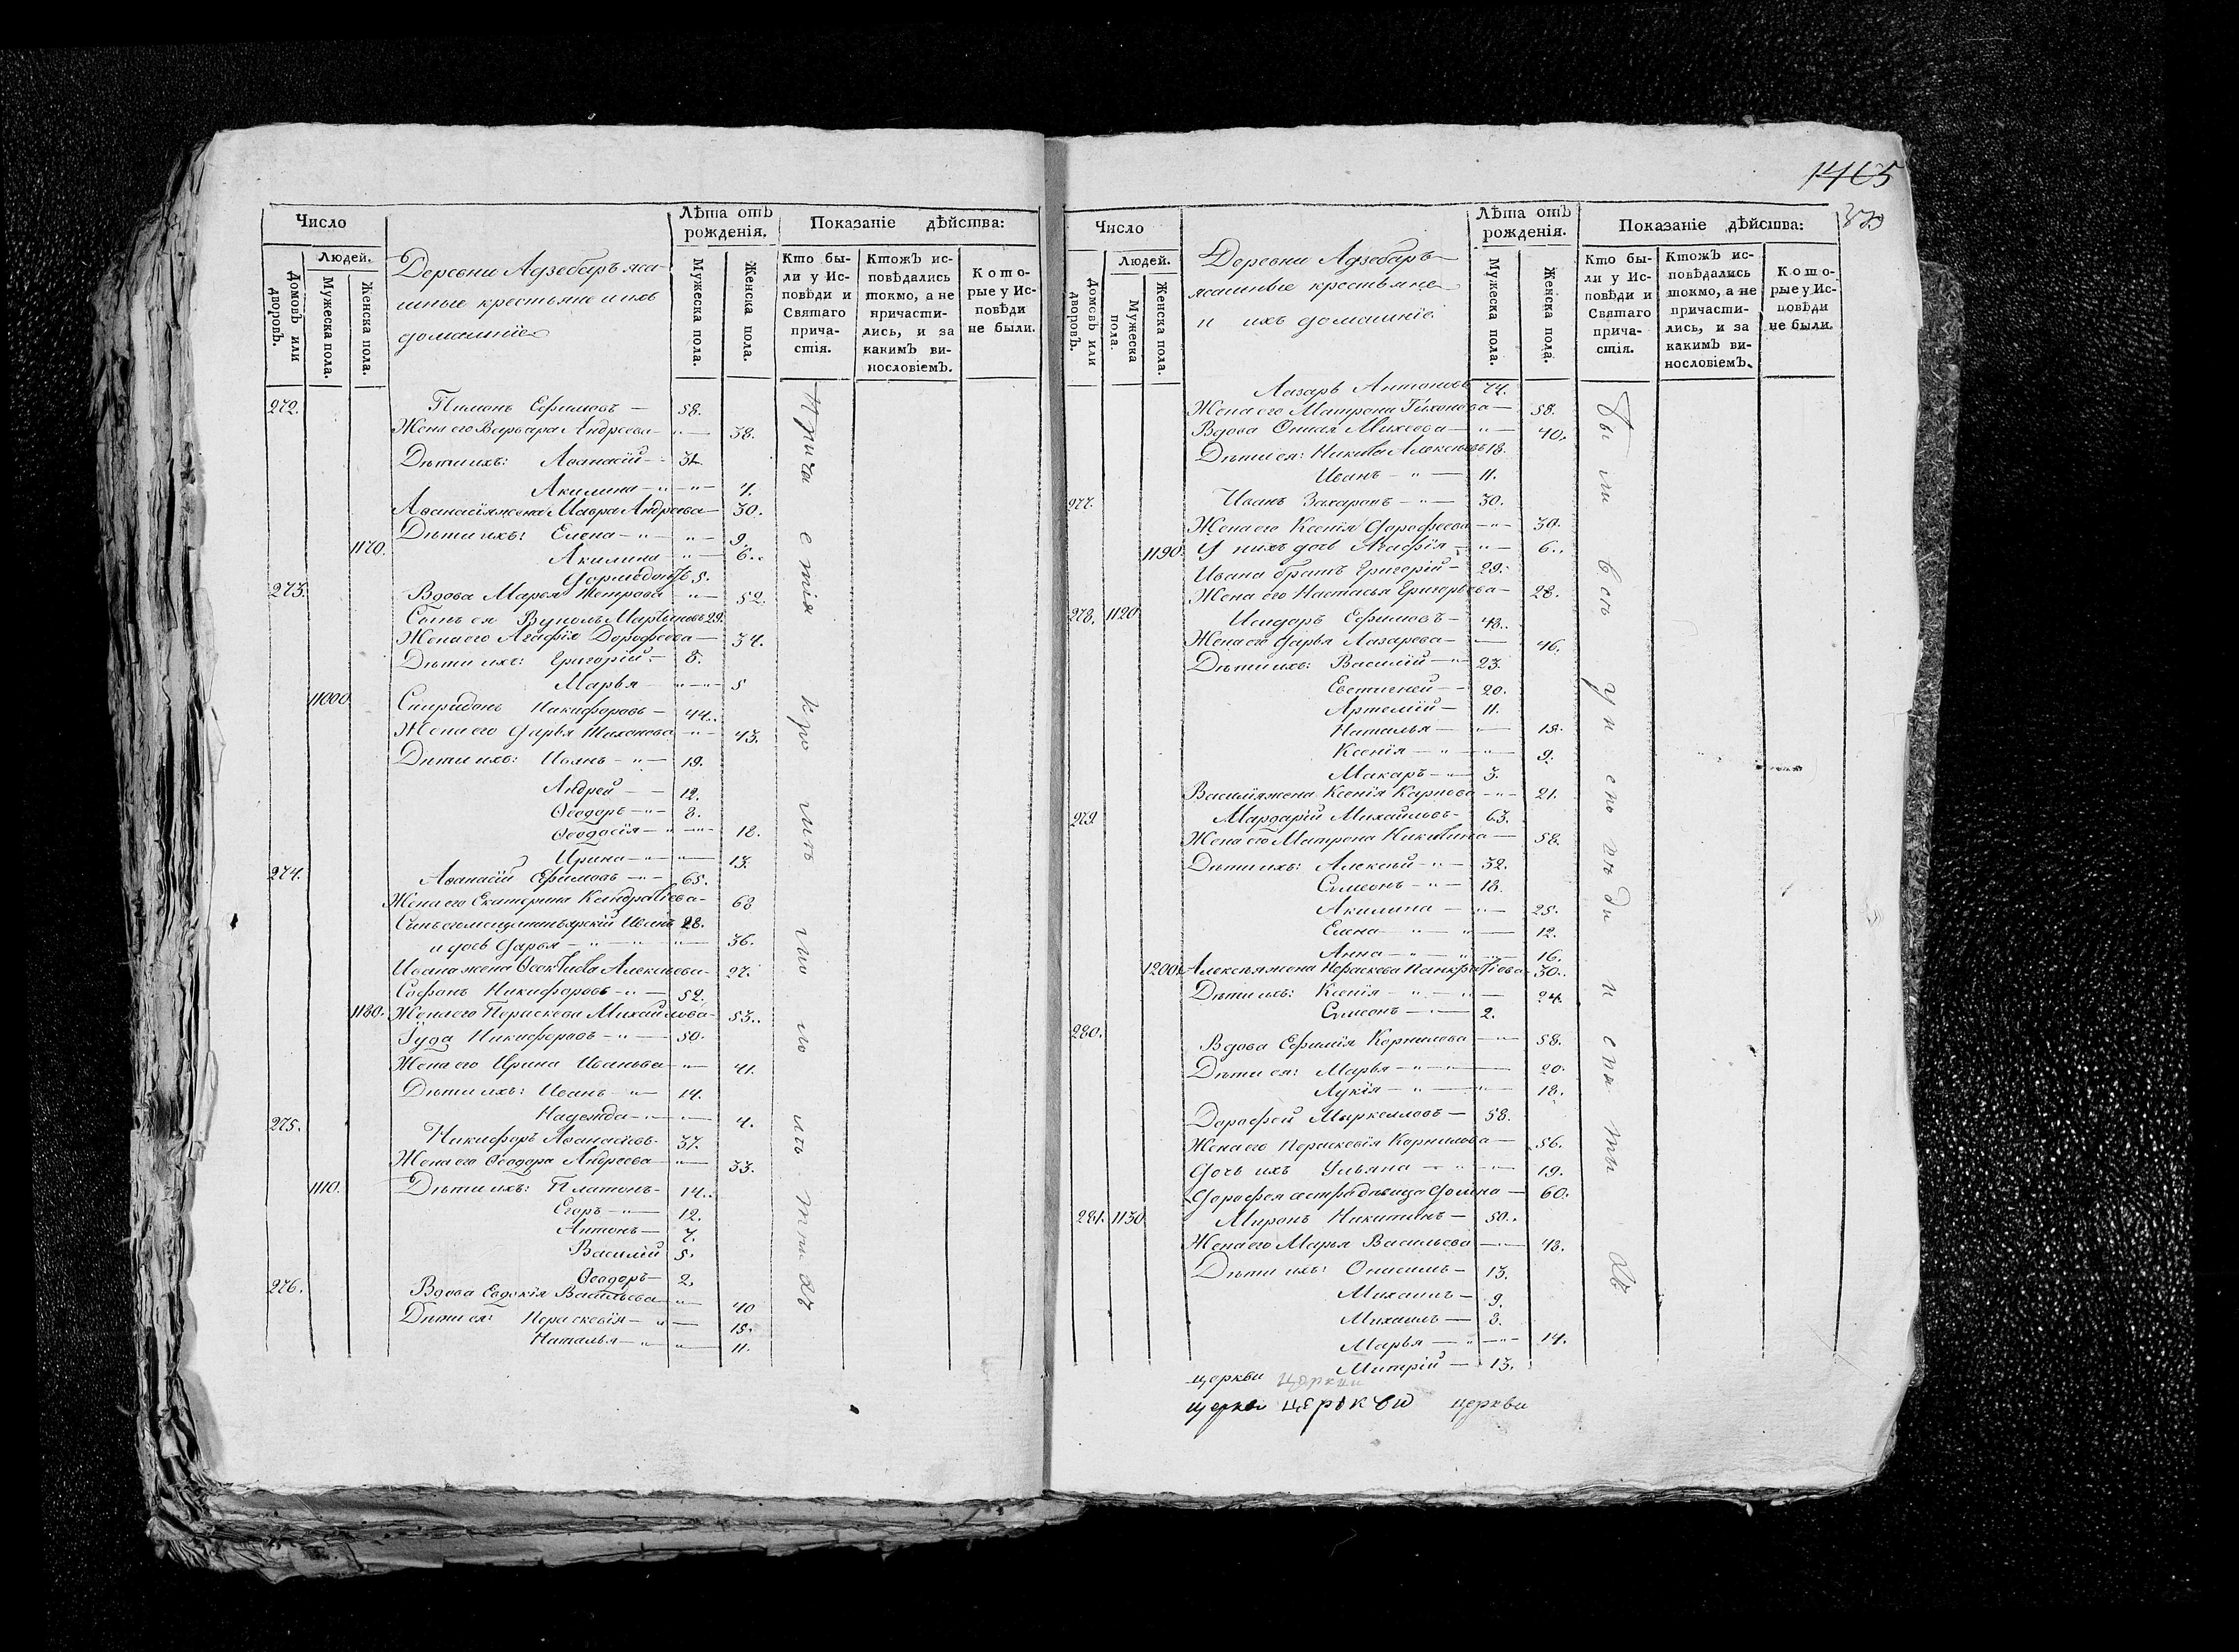 Число
Людей.
Домовъ или дворовъ.
Мужеска пола.
Женска пола.
Деревни Адзебаръ яса-
шные крестьяне и ихъ
домашніе
Лѣта отъ рожденія.
Мужеска пола.
Женска пола.
Показаніе дѣйства:
Кто бы-
ли у Ис-
повѣди и
Святаго
прича-
стія.
Ктожъ ис-
повѣдались
токмо, а не
причасти-
лись, и за
какимъ ви-
нословіемъ.
Кото-
рые у Ис-
повѣди
не были.
272. Пимонъ Ефимовъ — 58.
Жена его Варвара Андреева — 38.
Дѣти ихъ: Аѳанасій — 31.
Акилина — 7.
Аѳанасія жена Мавра Андреева — 30.
Дѣти ихъ: Елена — 9.
1170. Акилина — 6.
5.
273. Вдова Марья Петрова — 52.
Сынъ ея Мартиновъ 29.
Жена его Агафія Дорофеева — 34.
Дѣти ихъ: Григорій — 8.
Марья — 5
11000 Спиридонъ Никифоровъ — 44.
Жена его Дарья Тихонова — 43.
Дѣти ихъ: Иоанъ — 19.
Андрей — 12.
Ѳеодоръ — 8.
Ѳеодосія — 18.
Ирина — 13.
274. Аѳанасій Ефимовъ — 65.
Жена его Екатерина Кандратьева — 68
Иванъ 28.
и дочь Дарья — 36.
Ивана жена Алексеева — 27.
Софонъ Никифоровъ — 52.
1180. Жена его Параскева Михайлова — 53.
Іуда Никифоровъ — 50.
Жена его Ирина Иванова — 41.
Дѣти ихъ: Иванъ — 14.
Надежда — 4.
275. Никифоръ Аѳанасіевъ — 37.
Жена его Ѳеодора Андреева — 33.
1110. Дѣти ихъ: Платонъ — 14.
Егоръ — 12.
Антонъ — 7.
Василій 5.
Ѳеодоръ — 2.
276. Вдова Евдокія Васильева — 40
Дѣти ея: Параскевія — 15.
Наталья — 11.
1465
Число
Людей.
Домовъ или дворовъ.
Мужеска пола.
Женска пола.
Деревни Адзебаръ
ясашные крестьяне
и ихъ домашніе
Лѣта отъ рожденія.
Мужеска пола.
Женска пола.
Показаніе дѣйства:
Кто бы-
ли у Ис-
повѣди и
Святаго
прича-
стія.
Ктожъ ис-
повѣдались
токмо, а не
причасти-
лись, и за
какимъ ви-
нословіемъ.
Кото-
рые у Ис-
повѣди
не были.
Лазарь Антоновъ 74.
Жена его Матрона Тихонова — 58.
Вдова Михеева — 40.
Дѣти ея: Никита Алексеевъ 18.
Иванъ — 11.
277. Иванъ Захаровъ — 30.
Жена его Ксенія Дорофеева — 30.
1190. У нихъ дочь Агафія — 6.
Ивана братъ Григорій — 29.
Жена его Настасья Григорьева — 28.
278. 1120 Исидоръ Ефимовъ — 48.
Жена его Дарья Лазарева — 46.
Дѣти ихъ: Василій — 23.
Евстигней — 20.
Артемій — 11.
Наталья — 18.
Ксенія — 9.
Макаръ — 3.
Василія жена Ксенія Карпова — 21.
279. Мардарій Михайловъ — 63.
Жена его Матрона Никитина — 58.
Дѣти ихъ: Алексѣй — 32.
Симеонъ — 18.
Акилина — 25.
Елена — 12.
Анна — 16.
1200. Алексѣя жена Параскева Панкратьева — 30.
Дѣти ихъ: Ксенія — 24.
Симеонъ — 2.
280. Вдова Ефимія Корнилова — 58.
Дѣти ея: Марья — 20.
Лукія — 18.
Дорофей Маркелловъ — 58.
Жена его Параскевія Корнилова — 56.
Дочь ихъ Ульяна — 19.
Дорофея сестра 60.
281. 1130 Миронъ Никитинъ — 50.
Жена его Марья Васильева — 48.
Дѣти ихъ: Онисимъ — 13.
Михаилъ — 9.
Михаилъ — 8.
Марья — 14.
Митрій — 13.
церкви церкви
церкви церькви церкви